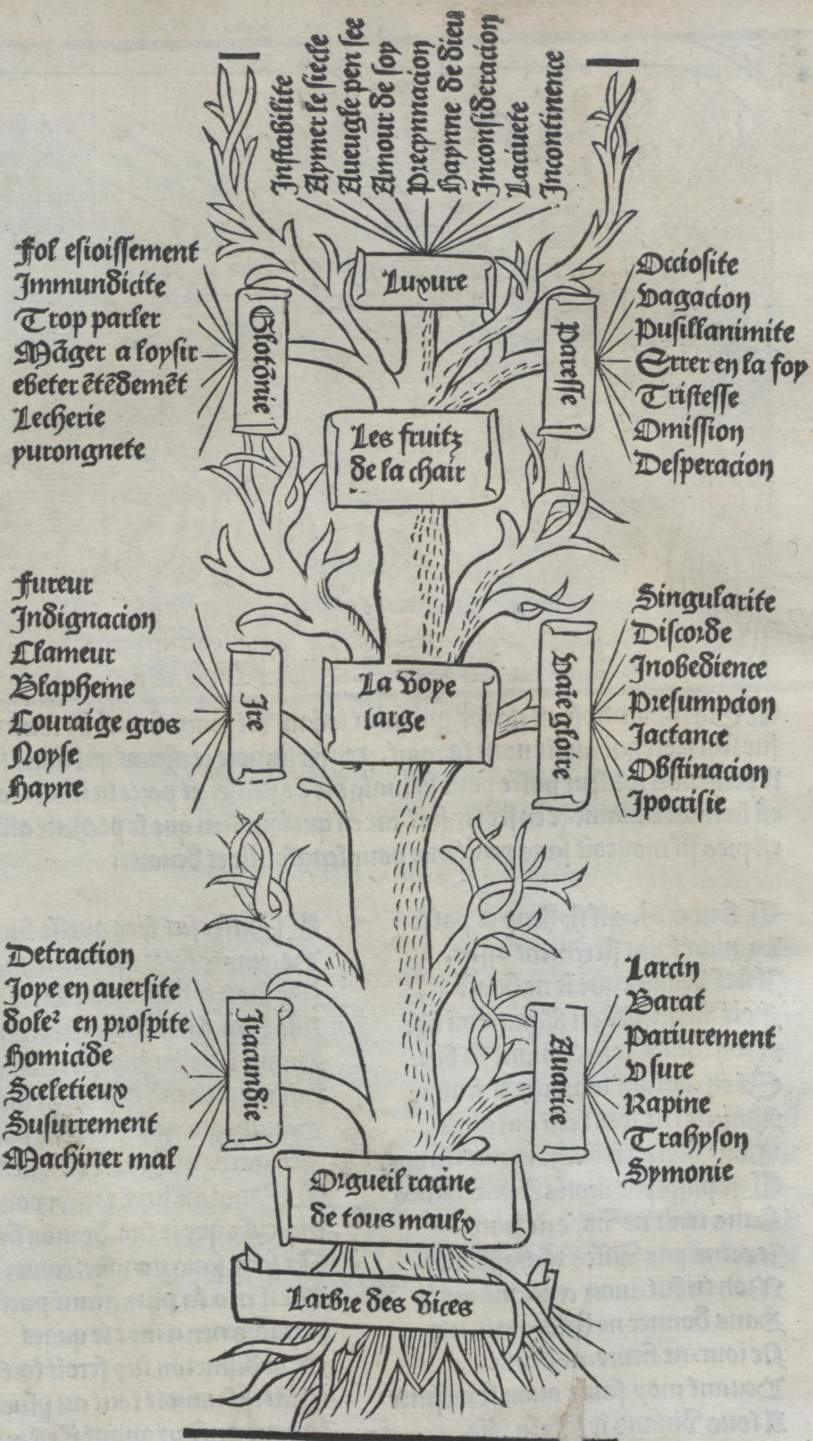 Instabilite
Aymer le siecle
Aueugle pen see
Amour de soy
Haynne de dieu
Inconsideracion
Laciuete
Incontinence
Luxure
Fol esioissement
Immundicite
Trop parler
Mãger a loysir
ebeter ẽtẽdemẽt
Lecherie
yurongnete
Glotõnie
Paresse
Occiosite
Vagacion
Pusillanimite
Errer en la foy
Tristesse
Omission
Desperacion
Les fruitz
de la chair
Fureur
Indignacion
Clameur
Blapheme
Couraige gros
Noyse
Hayne
Ire
La voye
large
Vaĩe gloire
Singularite
Discorde
Inobedience
Presumpcion
Jactance
Obstinacion
Ipocrisie
Detraction
Joye en auersite
dole² en prosp̱ite
Homicide
Sceletieux
Susurrement
Machiner mal
Iracundie
Auarice
Larcin
Barat
Pariurement
Vsure
Rapine
Trahyson
Symonie
Orgueil racine
de tous maulx
Larbre des vices